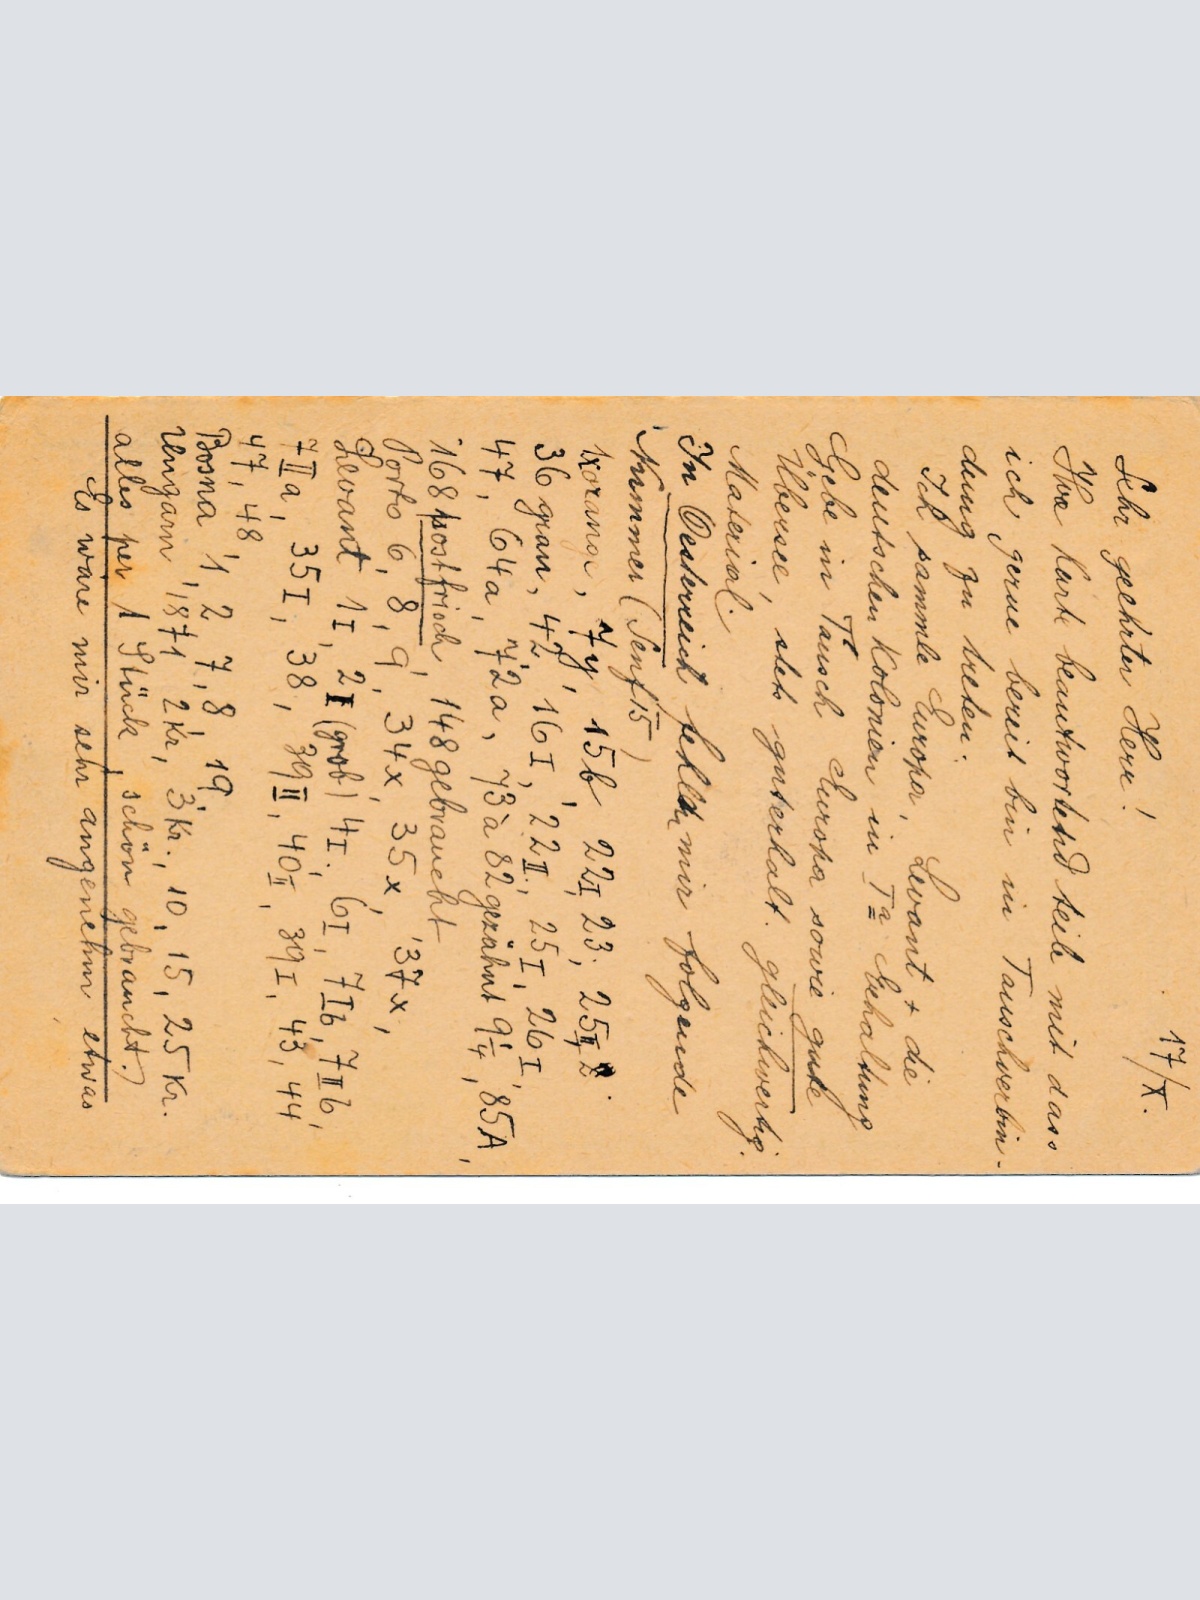 17/X.
Sehr geehrter Herr!
Ihre Karte beantwortend teile mit dass
ich gerne bereit bin in Tauschverbin-
dung zu treten.
Ich sammle Europa, Levant + die
deutschen Kolonien in Ta Erhaltung
Gebe in Tausch Europa sowie gute
Übersee, stets guterhalt. gleichwertig.
Material.
In Oesterreich fehlen mir folgende
Nummer (Senf 15)
1 orange, 7y, 15b, 22I 23, 25II
36 grau, 42, 16I, 22II, 25I, 26I,
47, 64a, 72a, 73 à 82 gezähnt 9¼, 85A,
168 postfrisch, 148 gebraucht
Porto 6, 8, 9, 34x, 35x, 37x,
Levant 1I, 2I (grob) 4I, 6I, 7Ib, 7IIb,
7IIa, 35I, 38, 39II, 40I, 39I, 43, 44,
47, 48,
Bosna 1, 2, 7, 8, 19,
Ungarn 1871 2Kr, 3Kr., 10, 15, 25 Kr.
alles per 1 Stück, schön gebraucht.)
Es wäre mir sehr angenehm, etwas